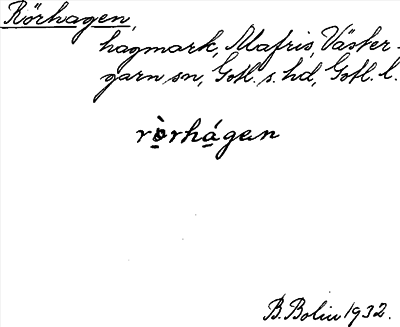 Rörhagen,
hagmark, Mafris, Väster-
garn sn, Gotl. s. hd, Gotl. l.
rò̤rhá̤gen
B. Bolin 1932.